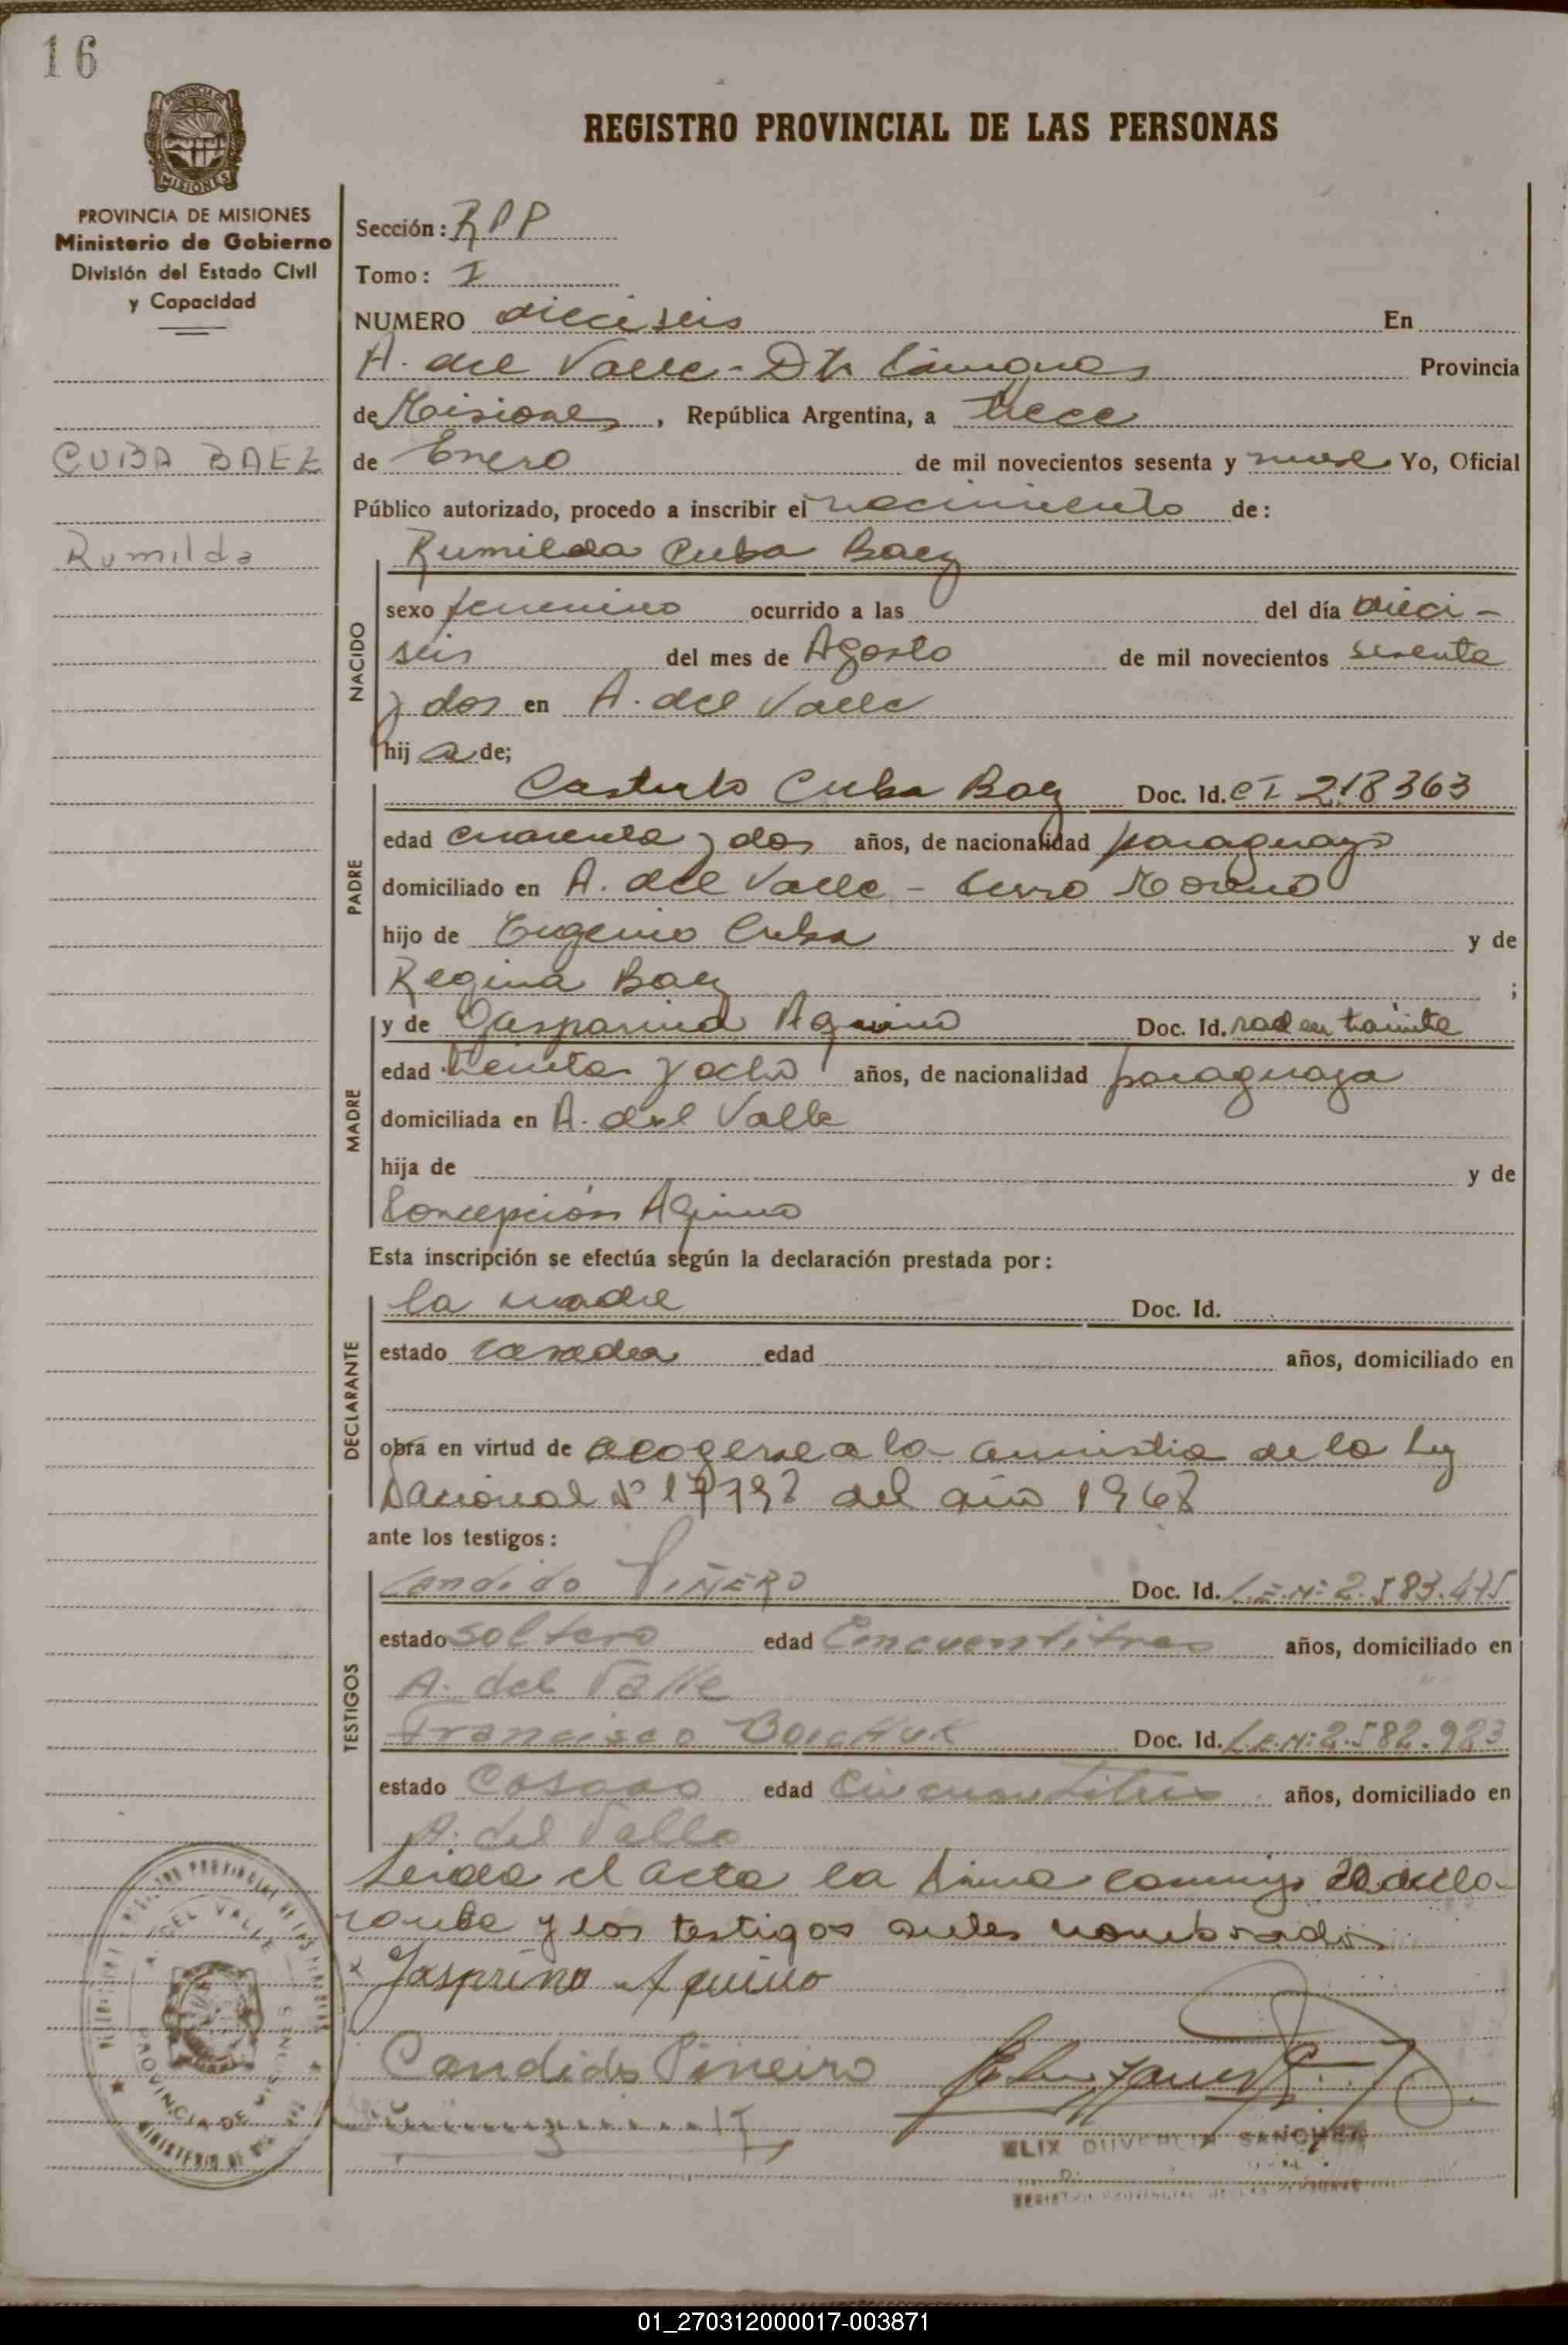 16
PROVINCIA DE
MISIONES
REGISTRO PROVINCIAL DE LAS PERSONAS
PROVINCIA DE MISIONES
Ministerio de Gobierno
División del Estado Civil
y Capacidad
CUBA BAEZ
Rumilda
Sección: RPP
Tomo: I
NUMERO dieciseis En
A. del Valle - Dto Cainguas Provincia
de Misiones, República Argentina, a trece
de Enero de mil novecientos sesenta y nueve Yo, Oficial
Público autorizado, procedo a inscribir el nacimiento de:
Rumilda Cuba Baez
NACIDO
sexo femenino ocurrido a las del día dieci-
seis del mes de Agosto de mil novecientos sesenta
y dos en A. del Valle
hij a de;
PADRE
Castulo Cuba Baez Doc. Id. CI 218363
edad cuarenta y dos años, de nacionalidad paraguayo
domiciliado en A. del Valle - Cerro Moreno
hijo de Eugenio Cuba y de
Regina Baez ;
MADRE
y de Gasparina Aquino Doc. Id. rad en tramite
edad treinta y ocho años, de nacionalidad paraguaya
domiciliada en A. del Valle
hija de y de
Concepción Aquino
Esta inscripción se efectúa según la declaración prestada por:
DECLARANTE
la madre Doc. Id.
estado casada edad años, domiciliado en
obra en virtud de acogerse a la amnistia de la Ley
Nacional Nº del año 1968
ante los testigos:
TESTIGOS
Candido PIÑERO Doc. Id. L.E.Nº 2.583.475
estado soltero edad Cincuentitres años, domiciliado en
A. del Valle
Francisco Doc. Id. L.E.Nº 2.582.923
estado Casado edad años, domiciliado en
A. del Valle
Leida el acta la firma conmigo la decla-
rante y los testigos antes nombrados
x Gasprina Aquino
Candido Piñeiro
ELIX DUVERLIN SANCHEZ
REGISTRO PROVINCIAL DE LAS PERSONAS
A. DEL VALLE
PROVINCIA DE MISIONES
01_270312000017-003871